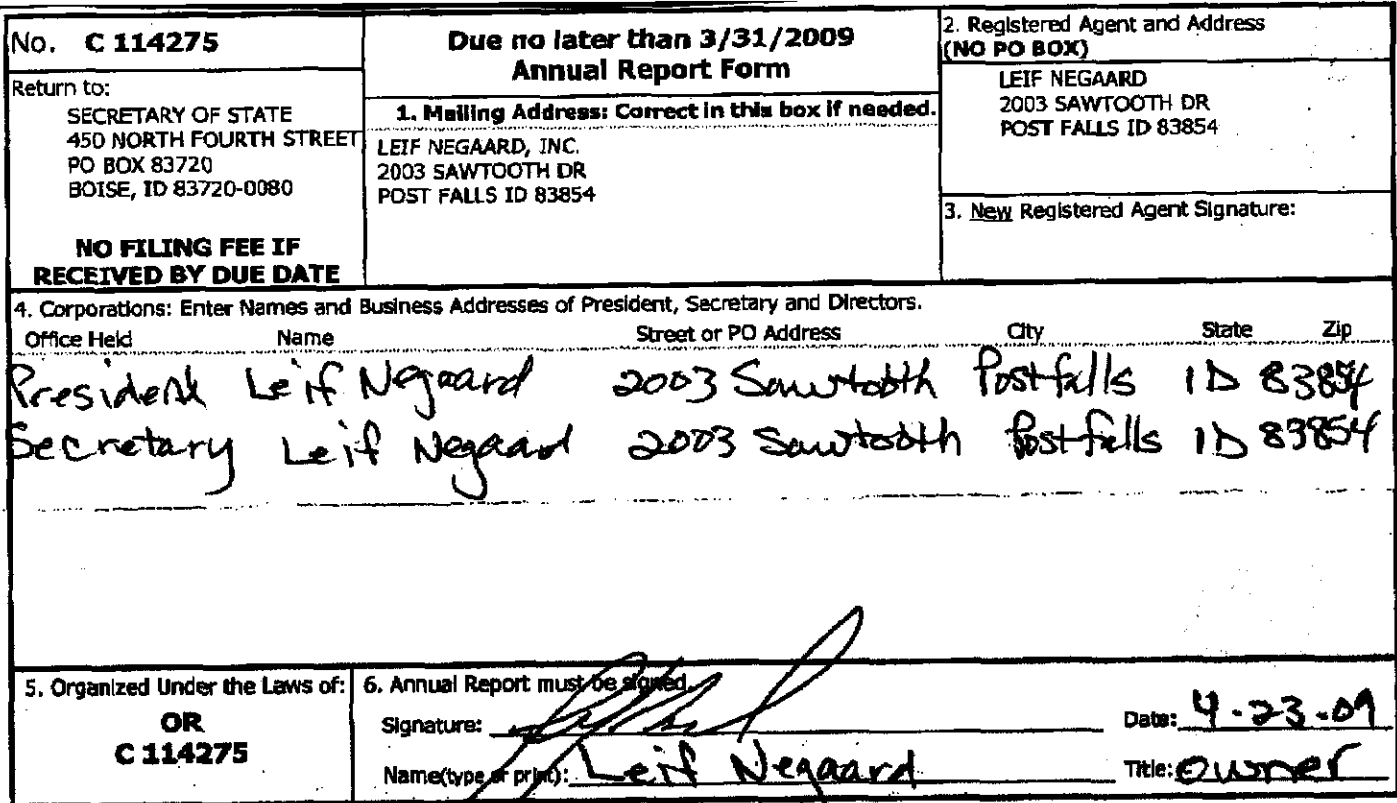 No. C 114275
Return to:
SECRETARY OF STATE
450 NORTH FOURTH STREET
PO BOX 83720
BOISE, ID 83720-0080
NO FILING FEE IF
RECEIVED BY DUE DATE
Due no later than 3/31/2009
Annual Report Form
1. Mailing Address: Correct in this box if needed.
LEIF NEGAARD, INC.
2003 SAWTOOTH DR
POST FALLS ID 83854
2. Registered Agent and Address
(NO PO BOX)
LEIF NEGAARD
2003 SAWTOOTH DR
POST FALLS ID 83854
3. New Registered Agent Signature:
4. Corporations: Enter Names and Business Addresses of President, Secretary and Directors.
Office Held Name Street or PO Address City State Zip
President Leif Negaard 2003 Sawtooth Post falls ID 83854
Secretary Leif Negaard 2003 Sawtooth Post falls ID 83854
5. Organized Under the Laws of:
OR
C 114275
6. Annual Report must be signed.
Signature: Date: 4-23-09
Name(type or print): Leif Negaard Title: Owner